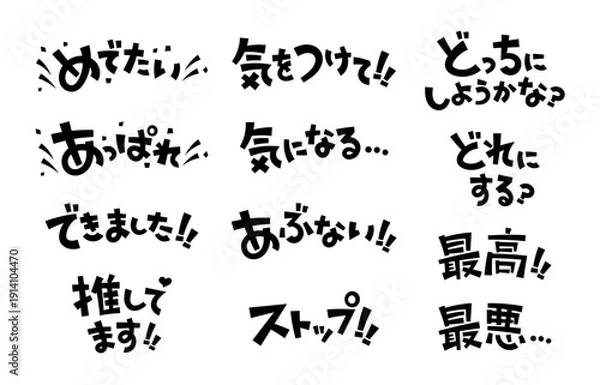 めでたい
あっぱれ
できました!!
推して
ます!!
気をつけて!!
気になる...
あぶない!!
ストップ!!
どっちに
しようかな?
どれに
する?
最高!!
最悪...
Adobe Stock | #1914104470